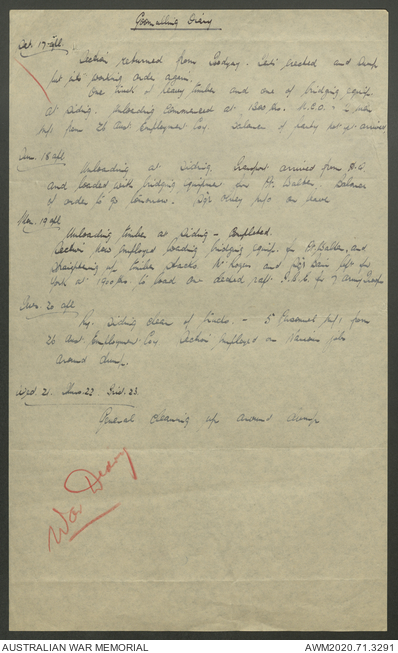 Goomalling Diary
Sat. 17 Apl.
Section returned from Toodyay. Tents pitched and dump
put into working order again.
One truck of heavy timber and one of bridging equip
at Siding. Unloading commenced at 1300 hrs. N.C.O. - men
m/i from 26 Aust Employment Coy. Balance of party not yet arrived
Sun. 18 Apl
Unloading at Siding, transport arrived from
and loaded with bridging equipment for Pt. Walter. Balance
of order to go tomorrow. m/o on leave
Mon. 19 Apl
Unloading timber at Siding - Completed.
Section now employed loading bridging equip. for Pt. Walter, and
straightening up timber stacks. and left for
York at 1900 hrs to load one decked raft. for
Tues. 20 Apl.
Ry. Siding clear of trucks. - 5 Personnel m/i from
26 Aust Employment Coy. Section employed on various jobs
around dump.
Wed. 21. Thurs. 22. Frid. 23.
General cleaning up around dump
War Deary
AUSTRALIAN WAR MEMORIAL
AWM2020.71.3291